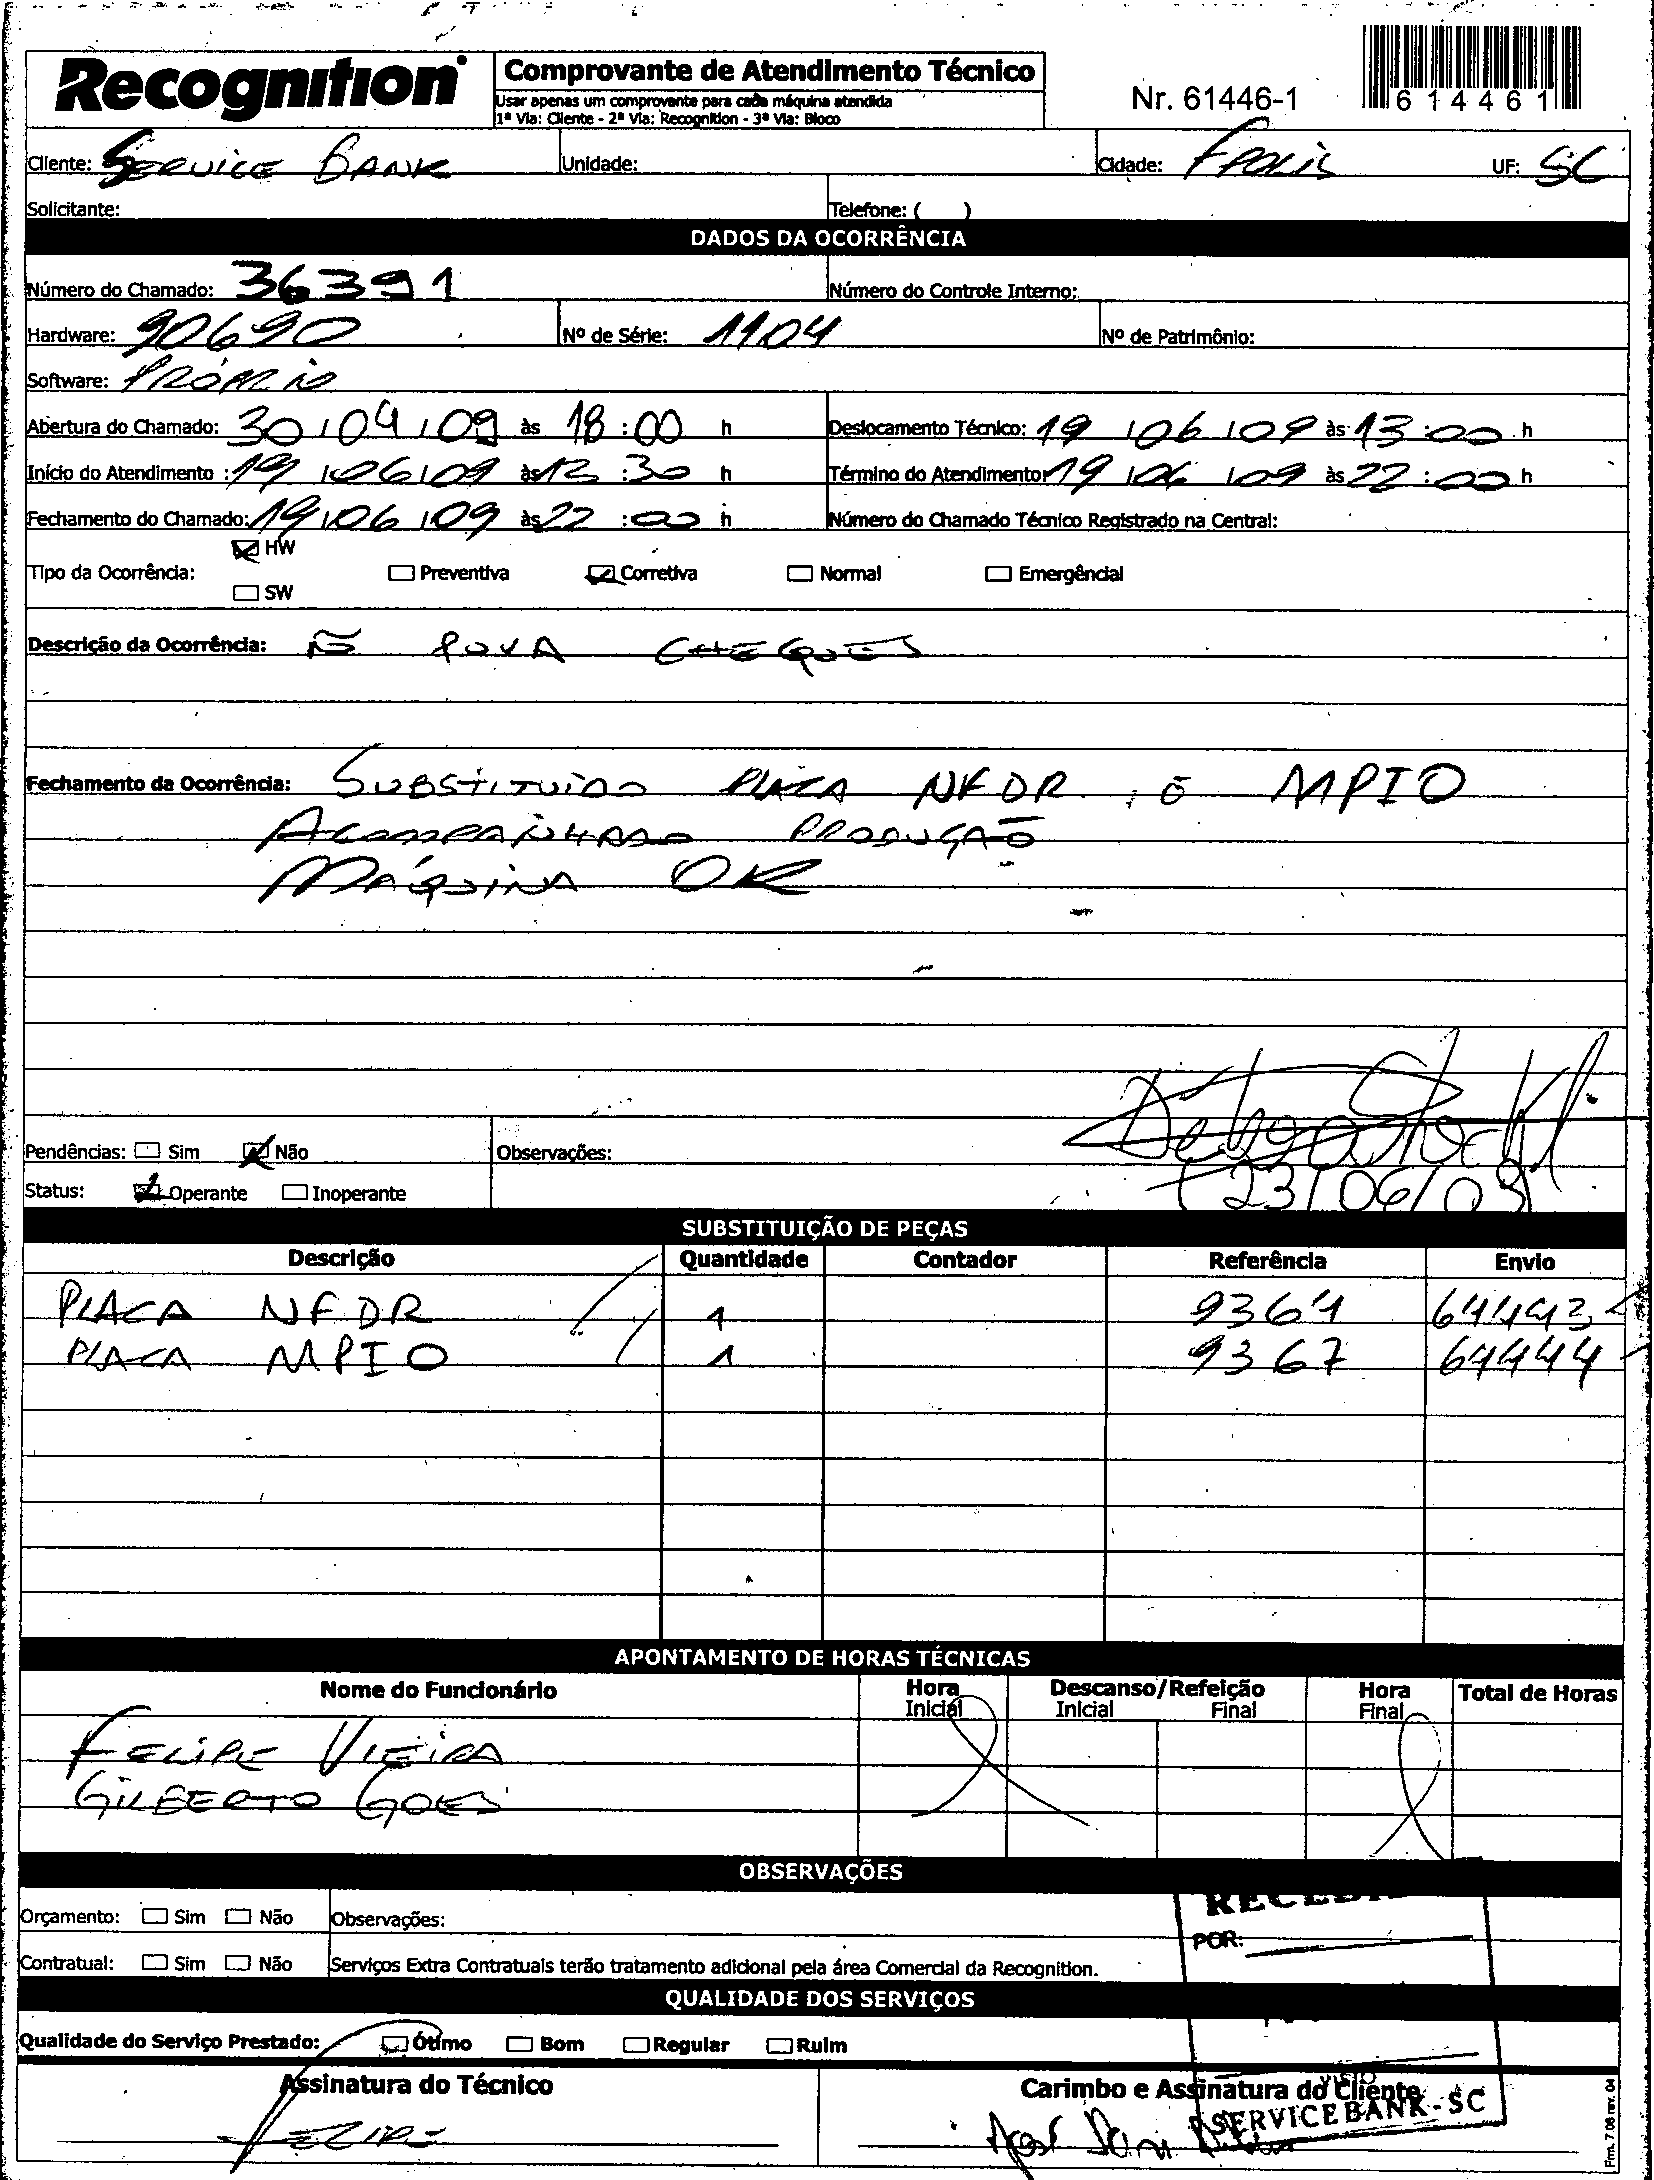 Recognition
Comprovante de Atendimento Técnico
Usar apenas um comprovante para cada máquina atendida
1ª Via: Cliente - 2ª Via: Recognition - 3ª Via: Bloco
Nr. 61446-1
614461
Cliente: SERVICE BANK Unidade: Cidade: FPOLIS UF: SC
Solicitante: Telefone: ( )
DADOS DA OCORRÊNCIA
Número do Chamado: 36391 Número do Controle Interno:
Hardware: 90690 Nº de Série: 1104 Nº de Patrimônio:
Software: PRÓPRIO
Abertura do Chamado: 30/04/09 às 18:00 h Deslocamento Técnico: 19/06/09 às 13:00 h
Início do Atendimento: 19/06/09 às 13:30 h Término do Atendimento: 19/06/09 às 22:00 h
Fechamento do Chamado: 19/06/09 às 22:00 h Número do Chamado Técnico Registrado na Central:
HW
Tipo da Ocorrência: Preventiva Corretiva Normal Emergêncial
SW
Descrição da Ocorrência: Ñ PUXA CHEQUES
Fechamento da Ocorrência: SUBSTITUIDO PLACA NFDR E MPIO
ACOMPANHADO PRODUÇÃO
MÁQUINA OK
Pendências: Sim Não Observações:
Status: Operante Inoperante
23/06/09
SUBSTITUIÇÃO DE PEÇAS
Descrição Quantidade Contador Referência Envio
PLACA NFDR 1 9364 64443
PLACA MPIO 1 9367 64444
APONTAMENTO DE HORAS TÉCNICAS
Nome do Funcionário Hora Inicial Descanso/Refeição Inicial Final Hora Final Total de Horas
FELIPE VIEIRA
GILBERTO GOES
OBSERVAÇÕES
Orçamento: Sim Não Observações:
POR:
Contratual: Sim Não Serviços Extra Contratuais terão tratamento adicional pela área Comercial da Recognition.
QUALIDADE DOS SERVIÇOS
Qualidade do Serviço Prestado: Ótimo Bom Regular Ruim
Assinatura do Técnico Carimbo e Assinatura do Cliente
VISTO
SERVICEBANK-SC
FELIPE
Frm. 7 06 rev. 04